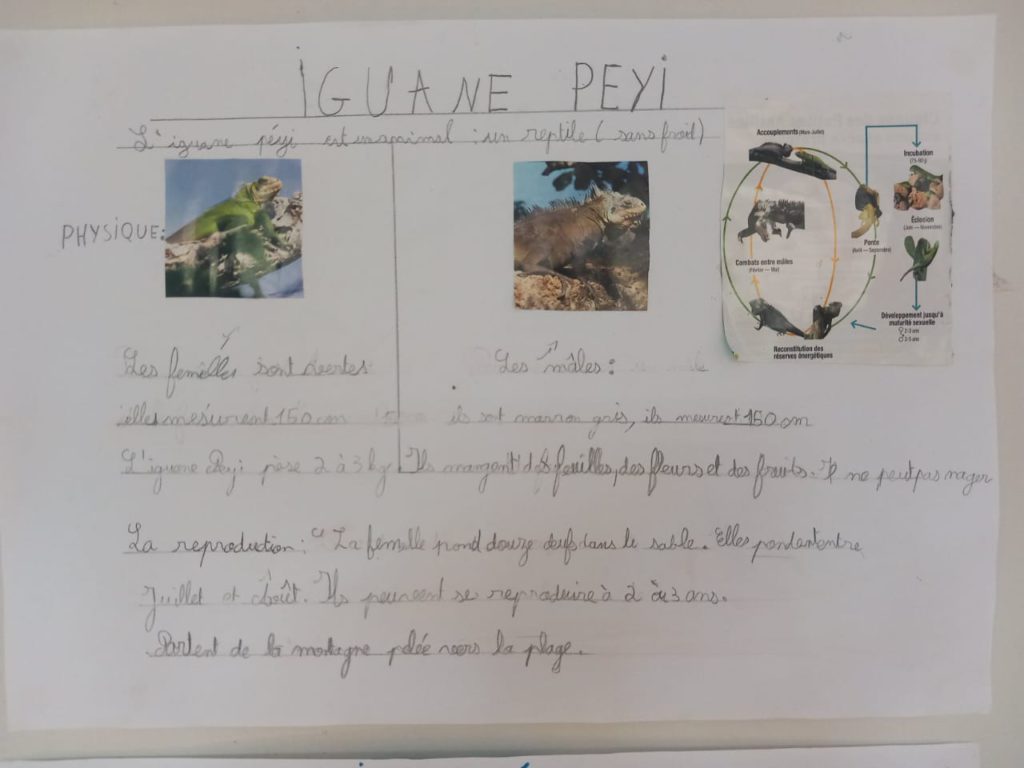 IGUANE PEYI
L'iguane péyi est un animal : un reptile (sans froid)
PHYSIQUE:
Les femelles sont vertes
elles mesurent 150 cm
Les mâles :
ils sont marron gris, ils mesurent 150 cm
L'iguane Peyi pèse 2 à 3 kg Ils mangent des feuilles, des fleurs et des fruits. Il ne peut pas nager
La reproduction : La femelle pond douze œufs dans le sable. Elles pondent entre
Juillet et août. Ils peuvent se reproduire à 2 ou 3 ans.
Partent de la montagne pelée vers la plage.
Accouplements (Mars-Juillet)
Incubation
(75-90 j)
Éclosion
(Juin — Novembre)
Ponte
(Avril — Septembre)
Combats entre mâles
(Février — Mai)
Développement jusqu'à
maturité sexuelle
♀ 2-3 ans
♂ 2-3 ans
Reconstitution des
réserves énergétiques